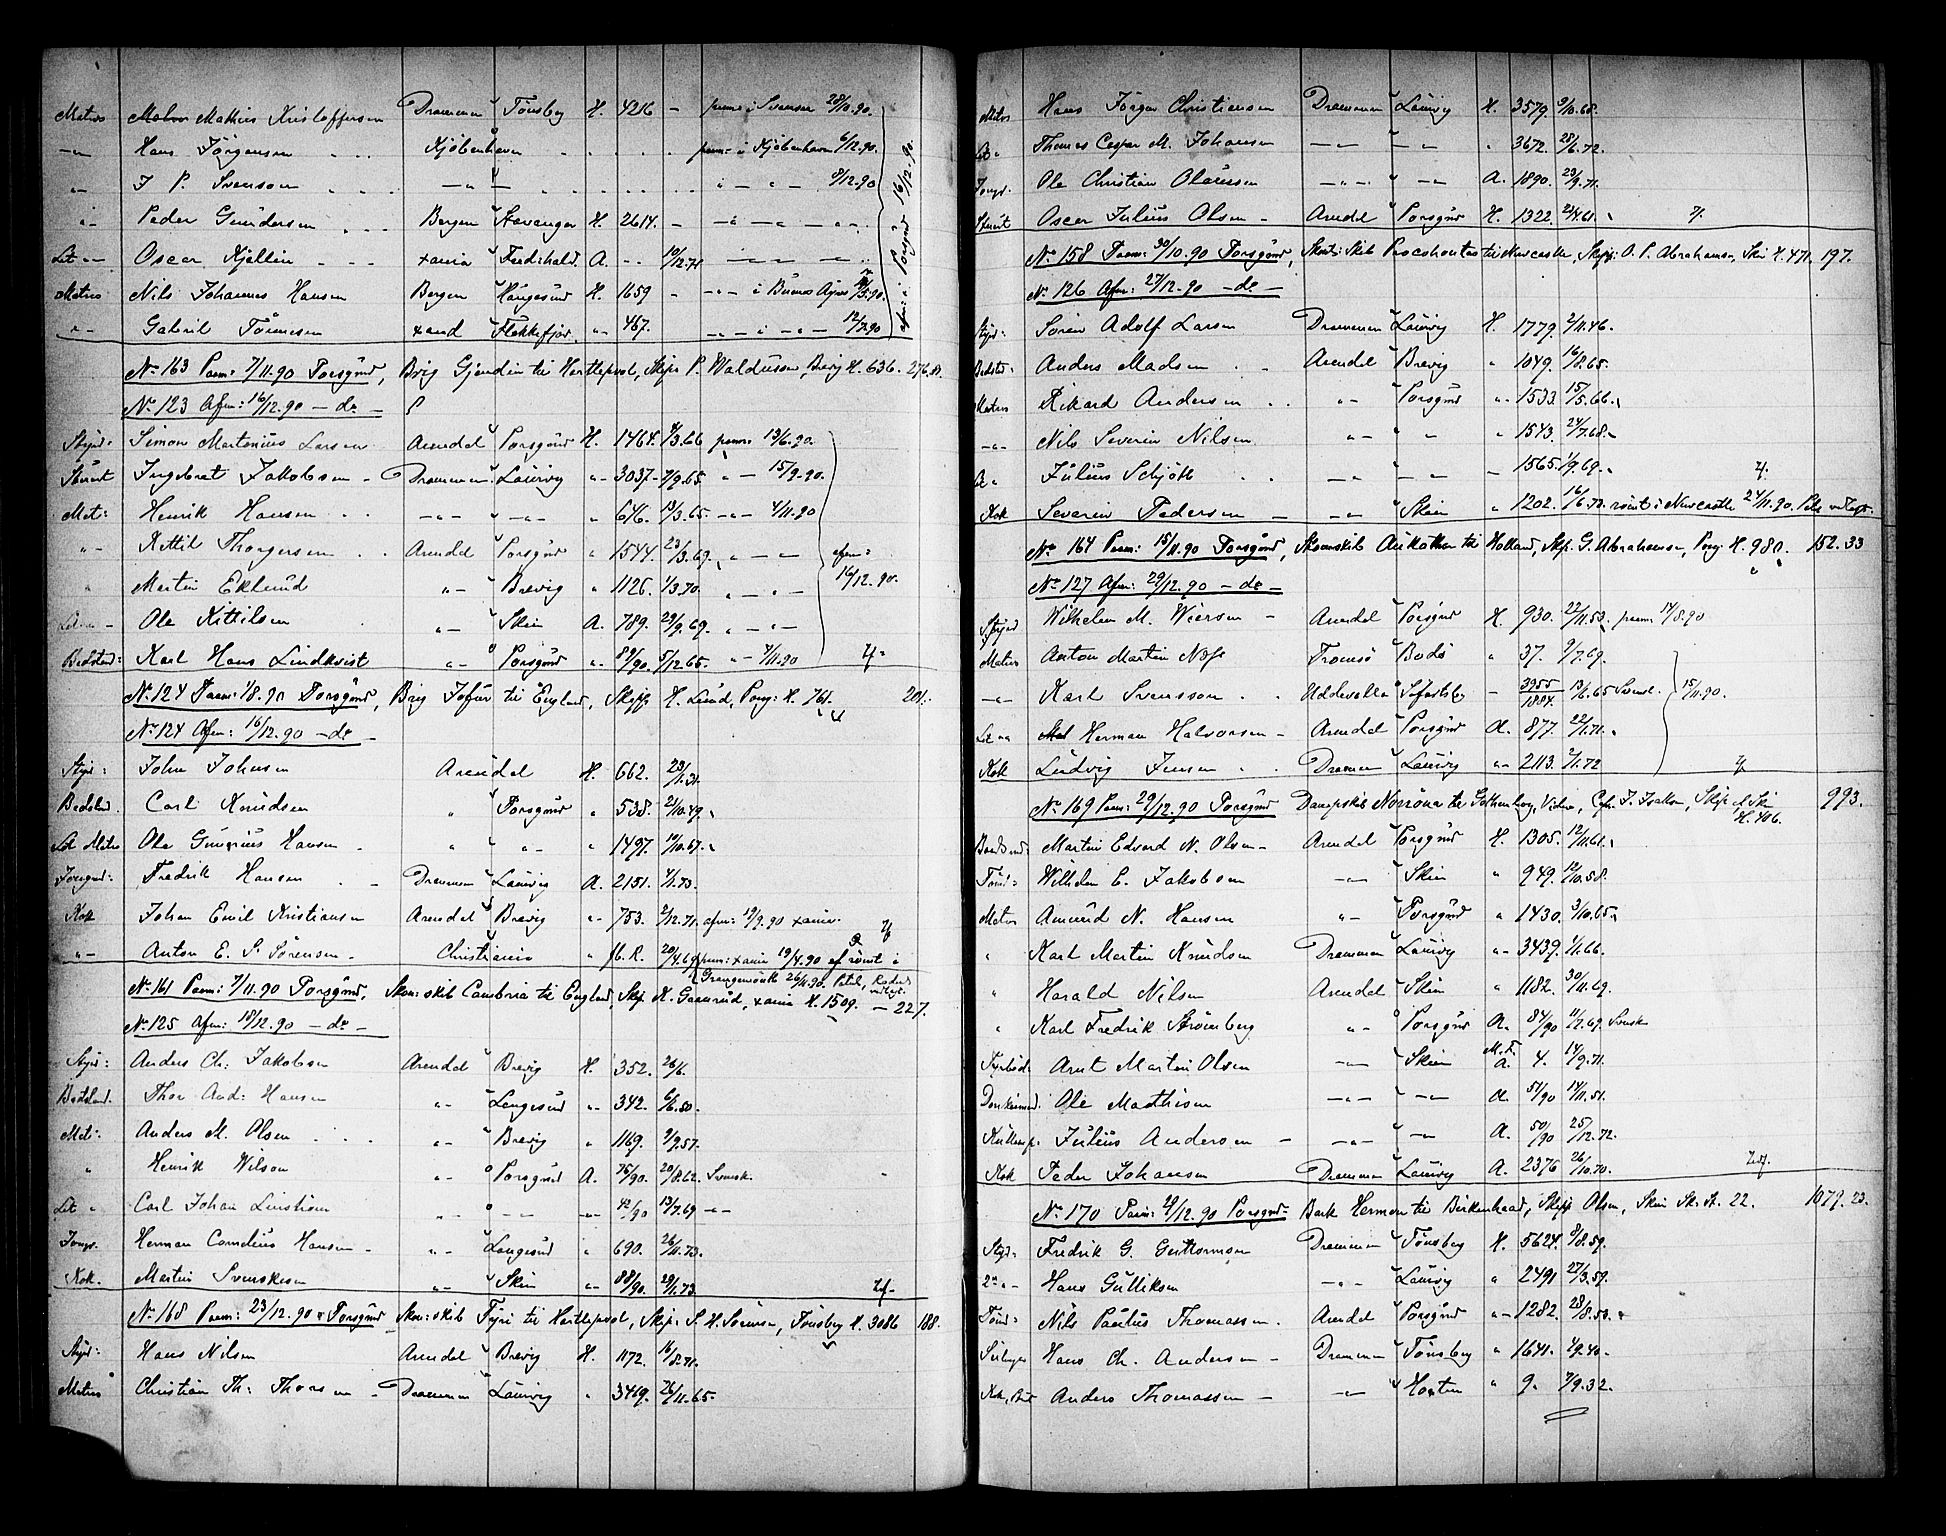 Matros Mathias Kristoffersen Drammen Tönsberg H. 4216 - paam: i Svansea 28/10.90.
-"- Hans Jörgensen Kjöbenhavn paam: i Kjöbenhavn 6/12.90.
"- J. P. Svenson -"- "-"- 8/12.90
"- Peder Gundersen Bergen Stavanger H. 2614. - -"-
Let "- Oscar Kjellin xania Fredrikshald A. 10/12.71
Matros Nils Johannes Hansen Bergen Haugesund H. 1659 - -"- i Buenos Ayres
"- Gabriel Tönnesen xsand Flekkefjord "- 467. -"- i -"- 12/7.90
afm: i Porsgrund 16/12.90.
No 163 Paam: 7/11.90 Porsgrund, Brig Gjendin til Hartlepool, Skipr P. Waldusen, Brevig H. 636. 276.
No 123 Afm: 16/12.90 - do -
Styrd: Simon Martenius Larsen Arendal Porsgrund H. 1464. 4/3.66 paam: 13/6.90.
Stuert Ingebret Jakobsen - Drammen Laurvig "- 3037. 7/9.65. "- 15/9.90.
Mat: Henrik Hansen -"- -"- " 646. 13/3.65. -"- 4/11.90
"- Kittil Thorgersen Arendal Porsgrund " 1544. 23/3.69. "- "- afm:
" Martin Eklund "- Brevig " 1126. 1/3.70. "- "- 16/12.90.
Let "- Ole Kittilsen "- Skien A. 789. 29/9.69. "- "-
Bedstmd: Karl Hans Lindkvist "- Porsgrund "- 89/90. 5/12.65. "- 7/11.90
No 124 Paam: 1/8.90 Porsgrund, Brig Jofur til England, Skipr H. Lund, Porsg: H. 761. 201.
No 124 Afm: 16/12.90 - do -
Styrd: John Johnsen Arendal H. 662. 29/1.31.
Bedstmd. Carl Knudsen " Porsgrund " 538. 21/10.49.
Let Matros Ole Hansen " "- " 1497. 10/10.67.
Jungmd: Fredrik Hansen - Drammen Laurvig A. 2151. 4/1.73.
Kok Johan Emil Kristiansen Arendal Brevig "- 753. 2/12.71. afm: 19/9.90 xania.
"- Anton E. S. Sörensen - Christiania " 20/4.69 paam: xania 19/4.90 römt i
Grangemouth 26/11.90.
No 161 Paam: 7/11.90 Porsgrund, Skon: skib Cambria til England, Skipr K. Gaarud, xania H. 1509. - 227.
No 125 Afm: 18/12.90 - do -
Styrd: Anders Ch. Jakobsen Arendal Brevig H. 352. 26/6.
Bedstmd. Thor And: Hansen "- Langesund "- 342. 6/6.50.
Mat: Anders M. Olsen "- Brevig " 1169. 9/9.57.
" Henrik Wilson "- Porsgrund A. 76/90. 20/8.62. Svensk.
Let " Carl Johan Linström "- "- "- 42/90 13/7.69 "-
Jungm. Herman Cornelius Hansen - "- Langesund " 690. 26/11.73.
Kok. Martin Svenskesen "- Skien "- 88/90. 29/1.73.
No 168 Paam: 23/12.90 Porsgrund Skon: skib Fyri til Hartlepool, Skipr S. H. Sörensen, Tönsberg H. 3086 188.
Styrd: Hans Nilsen Arendal Brevig H. 1172. 16/8.71.
Matros Christian Th: Thorsen - Drammen Laurvig " 3419. 26/11.65.
Matros Hans Jörgen Christiansen Drammen Laurvig H. 3579. 9/10.68.
Let " Thomas Casper M. Johansen -"- -"- " 3672. 28/6.72.
Jungm. Ole Christian Olaussen -"- "- A. 1890. 23/9.71.
Stuert Oscar Julius Olsen - Arendal Porsgrund H. 1322. 24/4.61.
No 158 Paam: 30/10.90 Porsgrund, Skon: Skib Pocohontas til Newcastle, Skipr: O. P. Abrahamsen, Skien H. 471. 197.
No 126 Afm: 27/12.90 - do -
Styrd: Sören Adolf Larsen Drammen Laurvig H. 1779. 2/11.46.
Bedstmd: Anders Madsen Arendal Brevig " 1049. 16/8.65.
Matros Rikard Andersen "- Porsgrund "- 1533. 15/5.66.
-"- Nils Severin Nilsen "- " " 1543. 24/7.68.
Let " Julius Schjött -"- -"- - 1565. 1/9.69.
Kok Severin Pedersen -"- Skien " 1202. 16/6.73. römt i Newcastle 24/11.90.
No 164 Paam: 15/11.90 Porsgrund, Skonnskib til Holland, Skipr. G. Abrahamsen, Porsg: H. 980. 152.33
No 127 Afm: 29/12.90 - do -
Styrd Wilhelm M. Wiersen - Arendal Porsgrund H. 930. 22/11.53. paam: 14/8.90
Matros Anton Martin Næss Tromsö Bodö " 37. 9/7.69.
-"- Karl Svensson Uddevalla - 3955/1884. 13/6.65 Svensk. 15/11.90.
Let "- Herman Halvorsen - Arendal Porsgrund A. 877. 22/1.71.
Kok Ludvig Jensen Drammen Laurvig "- 2113. 2/1.72
No 169 Paam: 29/12.90 Porsgrund Dampskib Norröna til Gothenborg, Skipr af Skien H. 406. 993.
Martin Edvard N. Olsen - Arendal Porsgrund H. 1305. 12/11.61.
Tömd: Wilhelm C. Jakobsen -"- Skien " 949. 12/10.58.
Matros Amund N. Hansen "- Porsgrund " 1430. 3/10.65.
" Karl Martin Knudsen Drammen Laurvig "- 3439. 1/1.66.
" Harald Nilsen Arendal Skien " 1182. 30/11.69.
" Karl Fredrik Strömberg "- Porsgrund A. 84/90 11/7.69. Svensk
Fyrböd. Arnt Martin Olsen -"- Skien M.F. A. 4. 14/9.71.
Donkeymd. Ole Mathisen -"- -"- A. 51/90 14/11.51.
Julius Andersen - -"- "- A. 50/90 25/12.72.
Kok Peder Johansen Drammen Laurvig A. 2376 26/10.70.
No 170 Paam: 9/12.90 Porsgrund - Bark Herman til Birkenhead, Skipr Olsen, Skien Sk. St. 22. 1079.23.
Styrd: Fredrik G. Guttormsen Drammen Tönsberg H. 5624. 8/8.59.
2n "- Hans Gulliksen -"- Laurvig " 2491 27/3.59.
Tömd: Nils Paulus Thomassen. Arendal Porsgrund "- 1282. 28/8.53.
Seilmgr Hans Ch. Andersen - Drammen Tönsberg " 1641. 2/9.40.
Kok, Stut Anders Thomassen - -"- Horten " 9. 7/9.32.